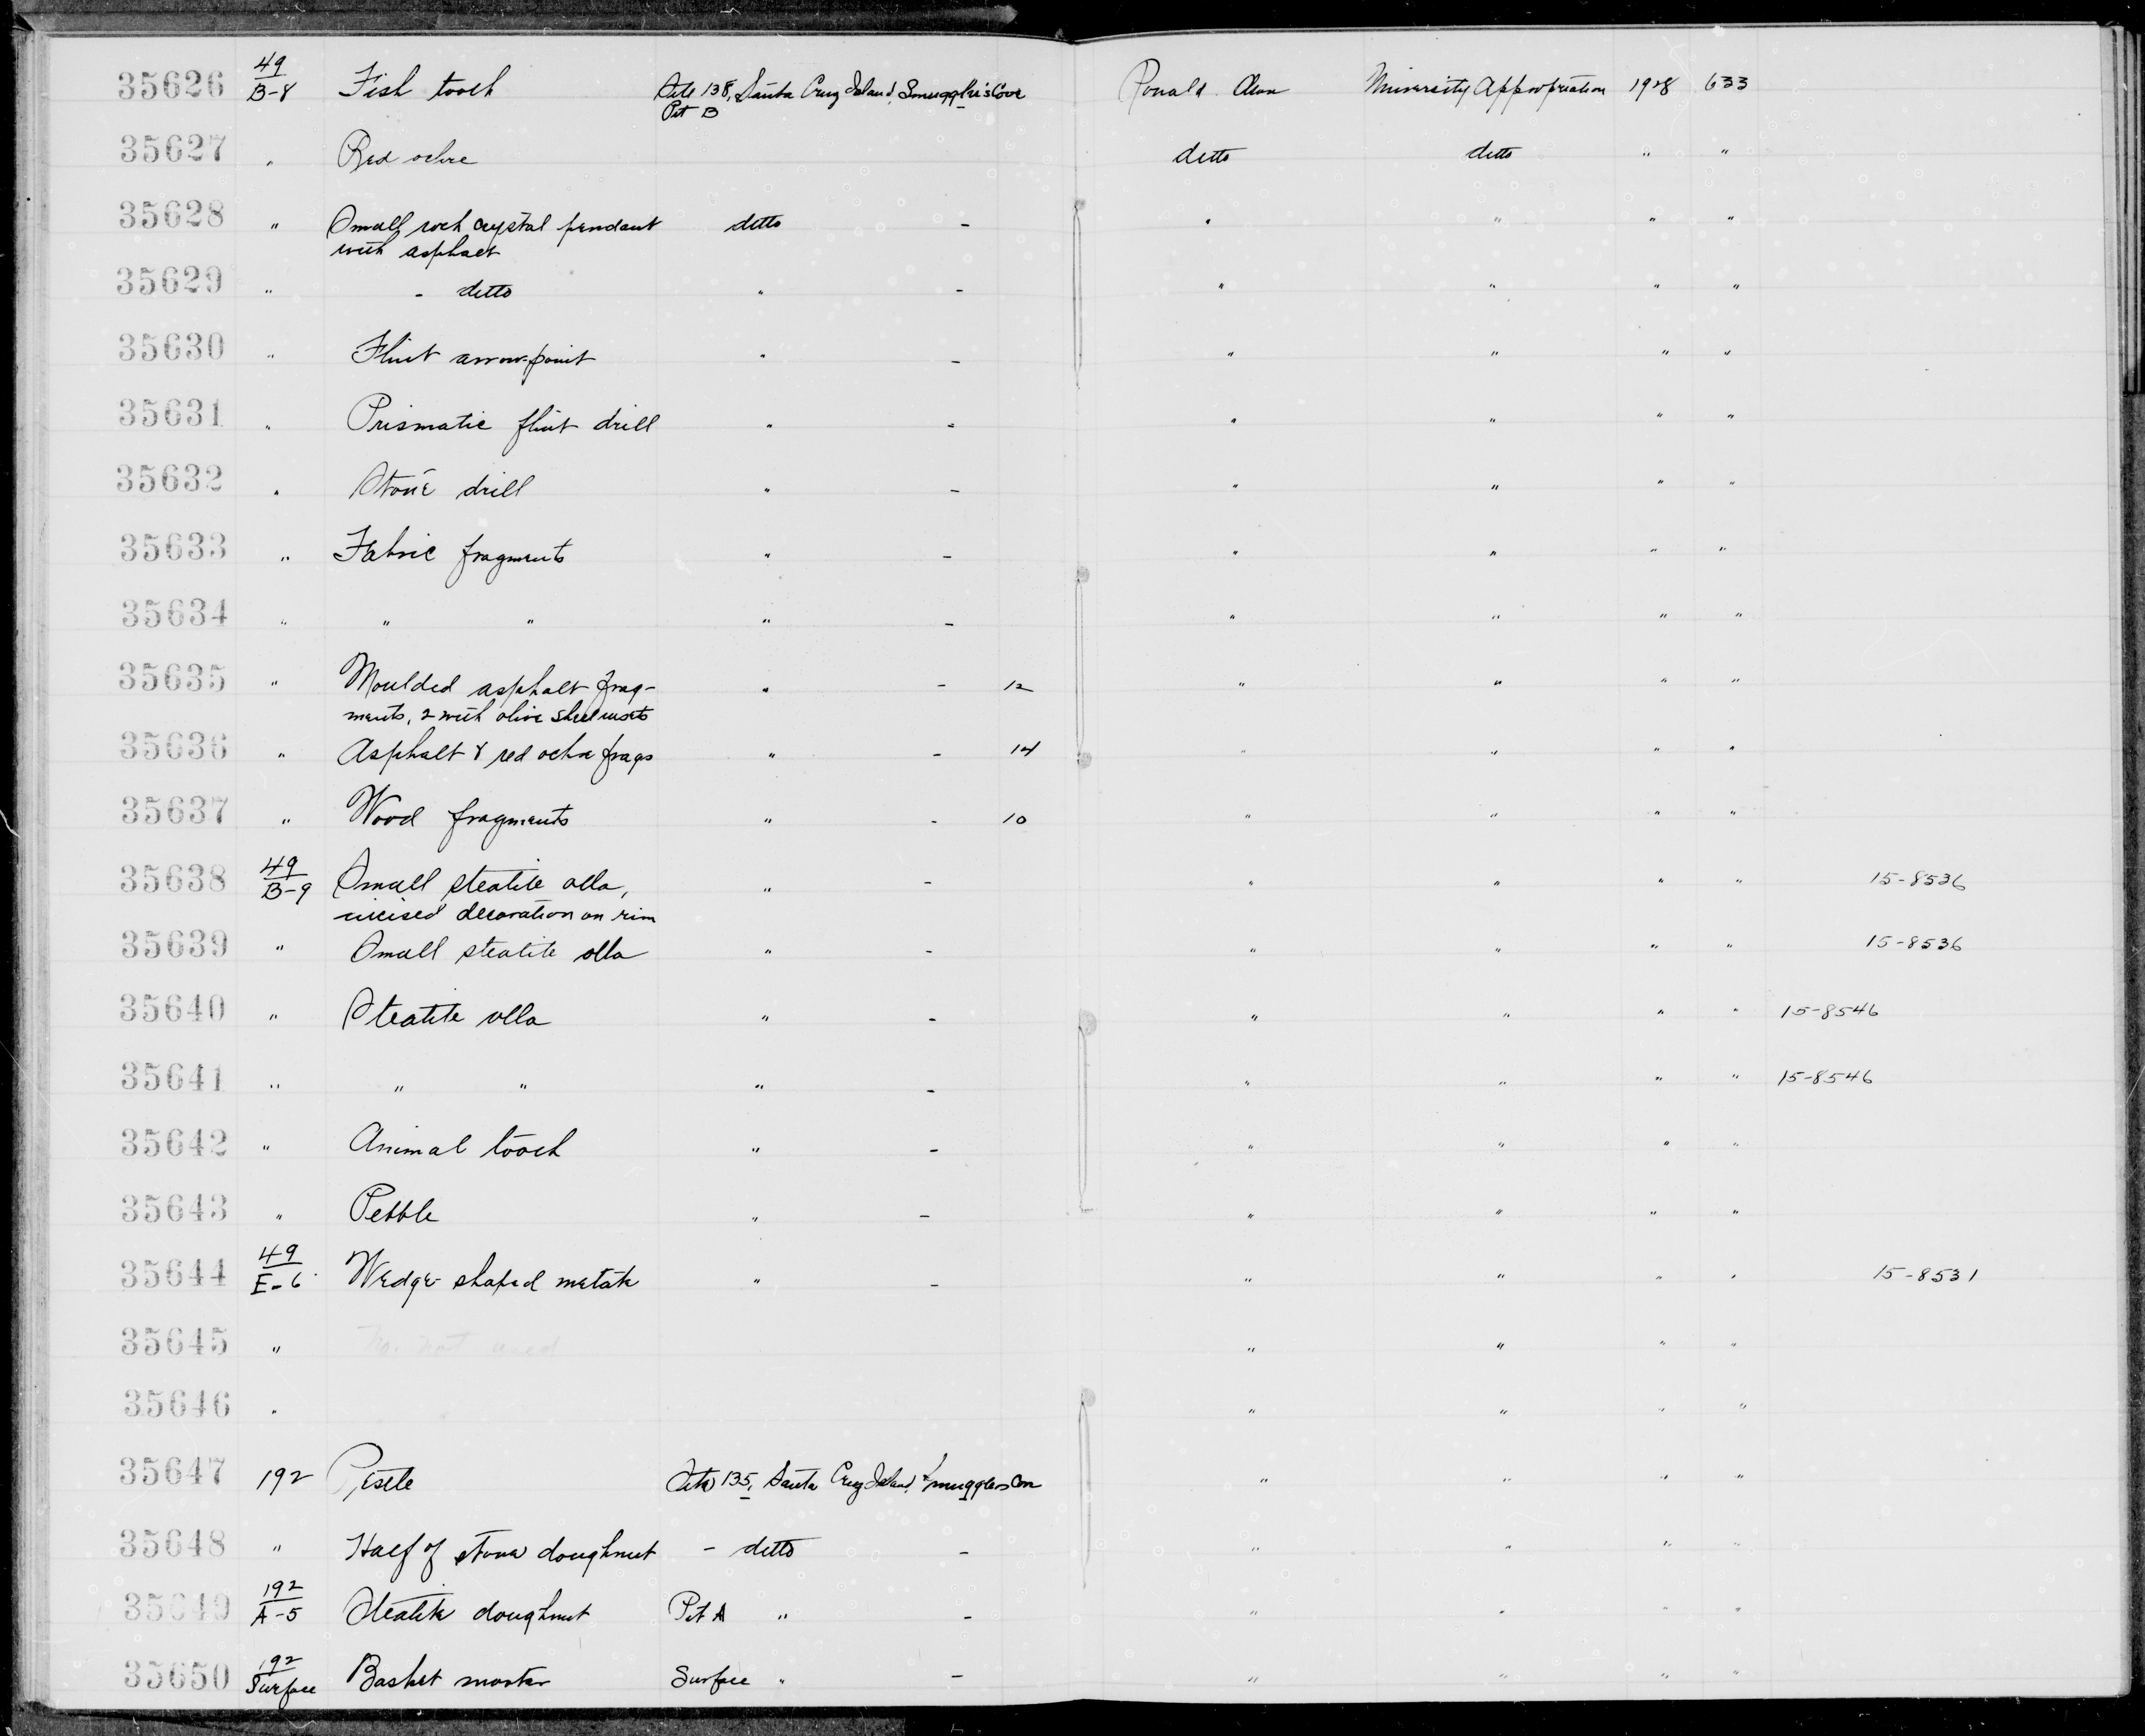 35626 49/B-8 Fish tooth Site 138, Santa Cruz Island, Smuggler's Cove Ronald Olson University Appropriation 1928 633
Pit B
35627 " Red ochre ditto ditto " "
35628 " Small rock crystal pendant ditto - " " " "
with asphalt
35629 " - ditto " - " " " "
35630 " Flint arrow-point " - " " " "
35631 " Prismatic flint drill " - " " " "
35632 " Stone drill " - " " " "
35633 " Fabric fragments " - " " " "
35634 " " " " - " " " "
35635 " Moulded asphalt frag- " - 12 " " " "
ments, 2 with olive shell insets
35636 " Asphalt & red ochre frags " - 14 " " " "
35637 " Wood fragments " - 10 " " " "
35638 49/B-9 Small steatite olla, " - " " " " 15-8536
incised decoration on rim
35639 " Small steatite olla " - " " " " 15-8536
35640 " Steatite olla " - " " " " 15-8546
35641 " " " " - " " " " 15-8546
35642 " Animal tooth " - " " " "
35643 " Pebble " - " " " "
35644 49/E-6 Wedge-shaped metate " - " " " " 15-8531
35645 " No. not used " " " "
35646 " " " " "
35647 192 Pestle Site 135, Santa Cruz Island, Smugglers Cove " " " "
35648 " Half of stone doughnut - ditto - " " " "
35649 192/A-5 Steatite doughnut Pit A " - " " " "
35650 192/Surface Basket mortar Surface " - " " " "